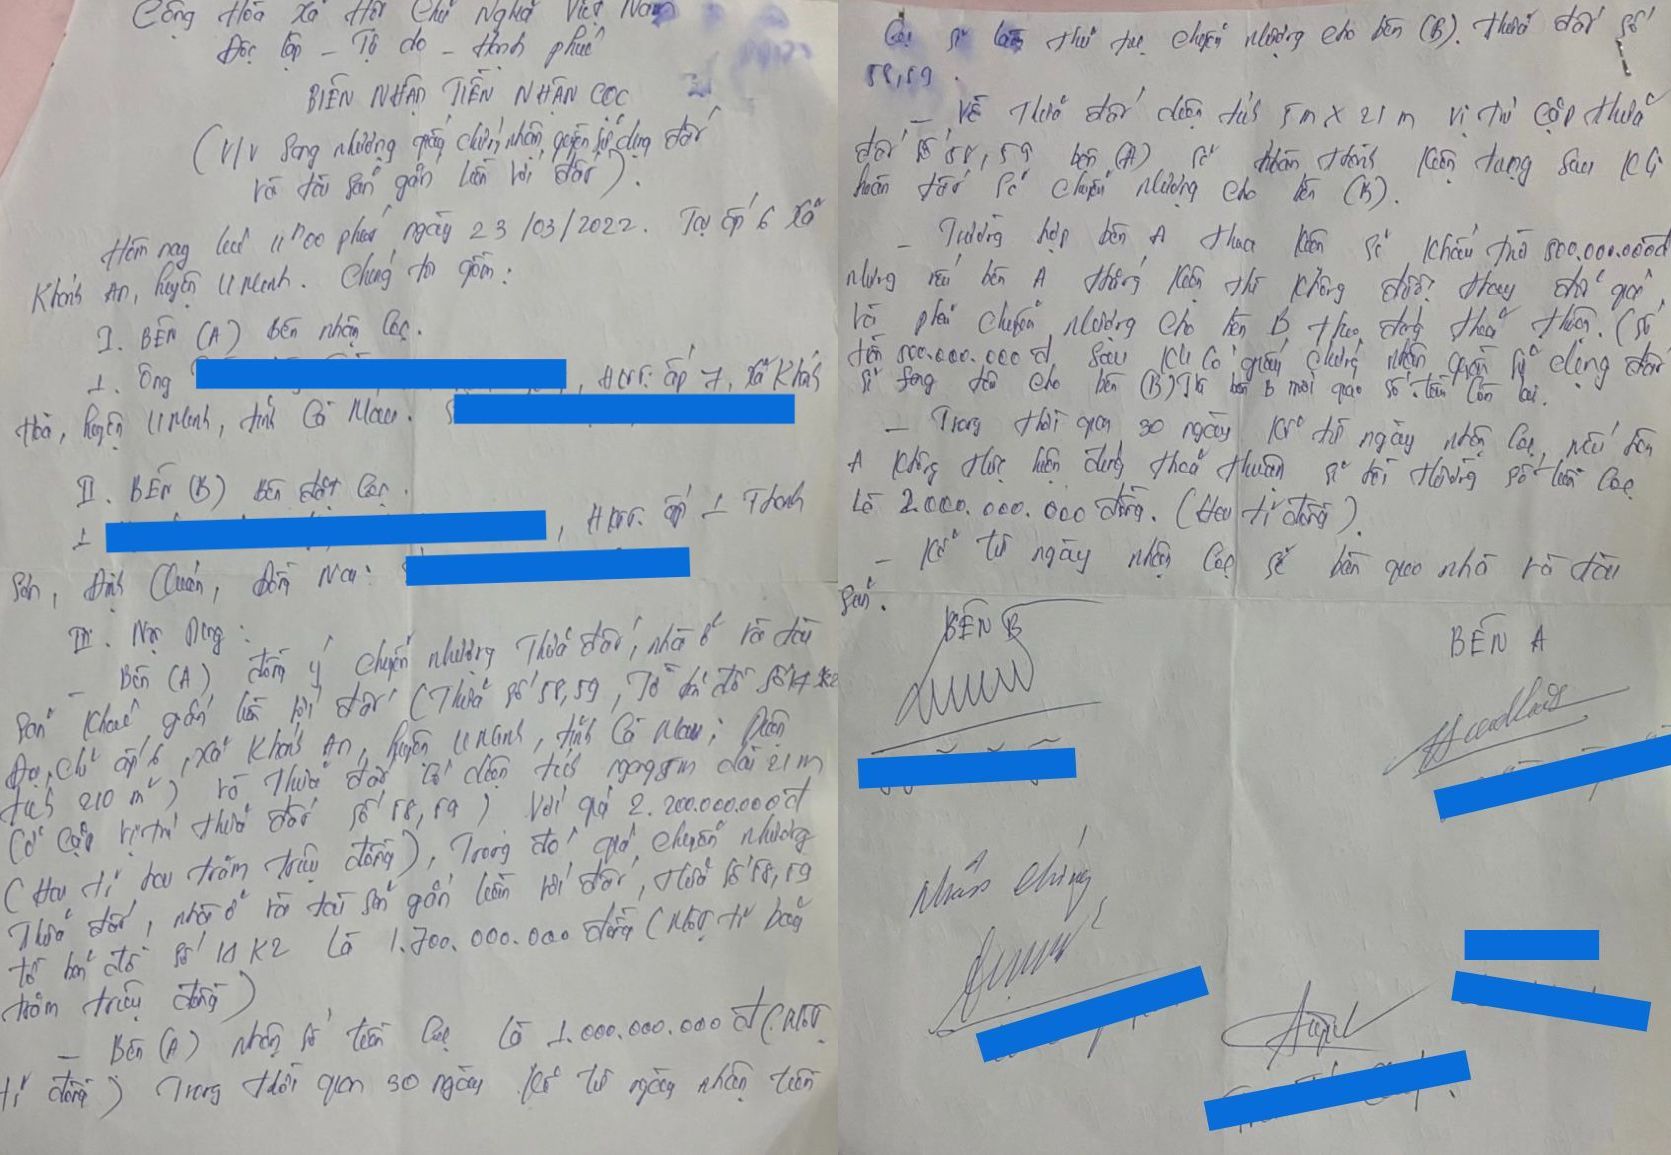 Cộng Hòa Xã Hội Chủ Nghĩa Việt Nam
Độc lập - Tự do - Hạnh phúc
BIÊN NHẬN TIỀN NHẬN CỌC
(V/v Sang nhượng giấy chứng nhận quyền sử dụng đất
và tài sản gắn liền với đất).
Hôm nay lúc 11h00 phút ngày 23/03/2022. Tại ấp 6 Xã
Khánh An, huyện U Minh. Chúng tôi gồm:
I. BÊN (A) Bên nhận Cọc.
1. Ông , ấp 7, xã Khánh
Hòa, huyện U Minh, tỉnh Cà Mau.
II. BÊN (B) Bên đặt Cọc.
1 , ấp 1 Thanh
Sơn, Định Quán, Đồng Nai:
III. Nội Dung:
- Bên (A) đồng ý chuyển nhượng Thửa đất, nhà ở và tài
sản khác gắn liền với đất (Thửa số 58,59, Tờ bản đồ số 14 K2
Địa chỉ ấp 6, xã Khánh An, huyện U Minh, tỉnh Cà Mau; Diện
tích 210 m²) và Thửa đất có diện tích ngang 5m dài 21m
(Có cặp vị trí thửa đất số 58,59) Với giá 2.200.000.000đ
(Hai tỉ hai trăm triệu đồng), Trong đó giá chuyển nhượng
Thửa đất, nhà ở và tài sản gắn liền với đất, thửa số 58,59
tờ bản đồ số 14 K2 Là 1.700.000.000 đồng (Một tỉ bảy
trăm triệu đồng)
- Bên (A) nhận số tiền Cọc Là 1.000.000.000 đ (Một
tỉ đồng) Trong thời gian 30 ngày kể từ ngày nhận tiền
Cọc sẽ làm thủ tục chuyển nhượng cho bên (B). Thửa đất số
58,59.
- Về Thửa đất diện tích 5m x 21m vị trí cặp thửa
đất số 58,59 bên (A) sẽ kiện sau khi
hoàn tất sẽ chuyển nhượng cho bên (B).
- Trường hợp bên A thua kiện sẽ khấu trừ 500.000.000đ
nhưng nếu bên A thắng kiện thì không được thay đổi giá
và phải chuyển nhượng cho bên B theo đúng thoả thuận. (Số
tiền 500.000.000đ sau khi có giấy chứng nhận quyền sử dụng đất
sẽ sang tên cho bên (B) thì bên B mới giao số tiền còn lại.
- Trong thời gian 30 ngày kể từ ngày nhận Cọc nếu bên
A không thực hiện đúng thoả thuận sẽ bồi thường số tiền Cọc
Là 2.000.000.000 đồng. (Hai tỉ đồng).
- Kể từ ngày nhận Cọc sẽ bàn giao nhà và tài
sản.
BÊN B
BÊN A
Nhân chứng